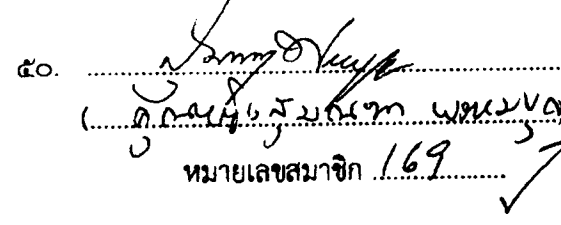 ๕๐.
( คุณหญิงสุมณฑา พรหมบุญ
หมายเลขสมาชิก 169